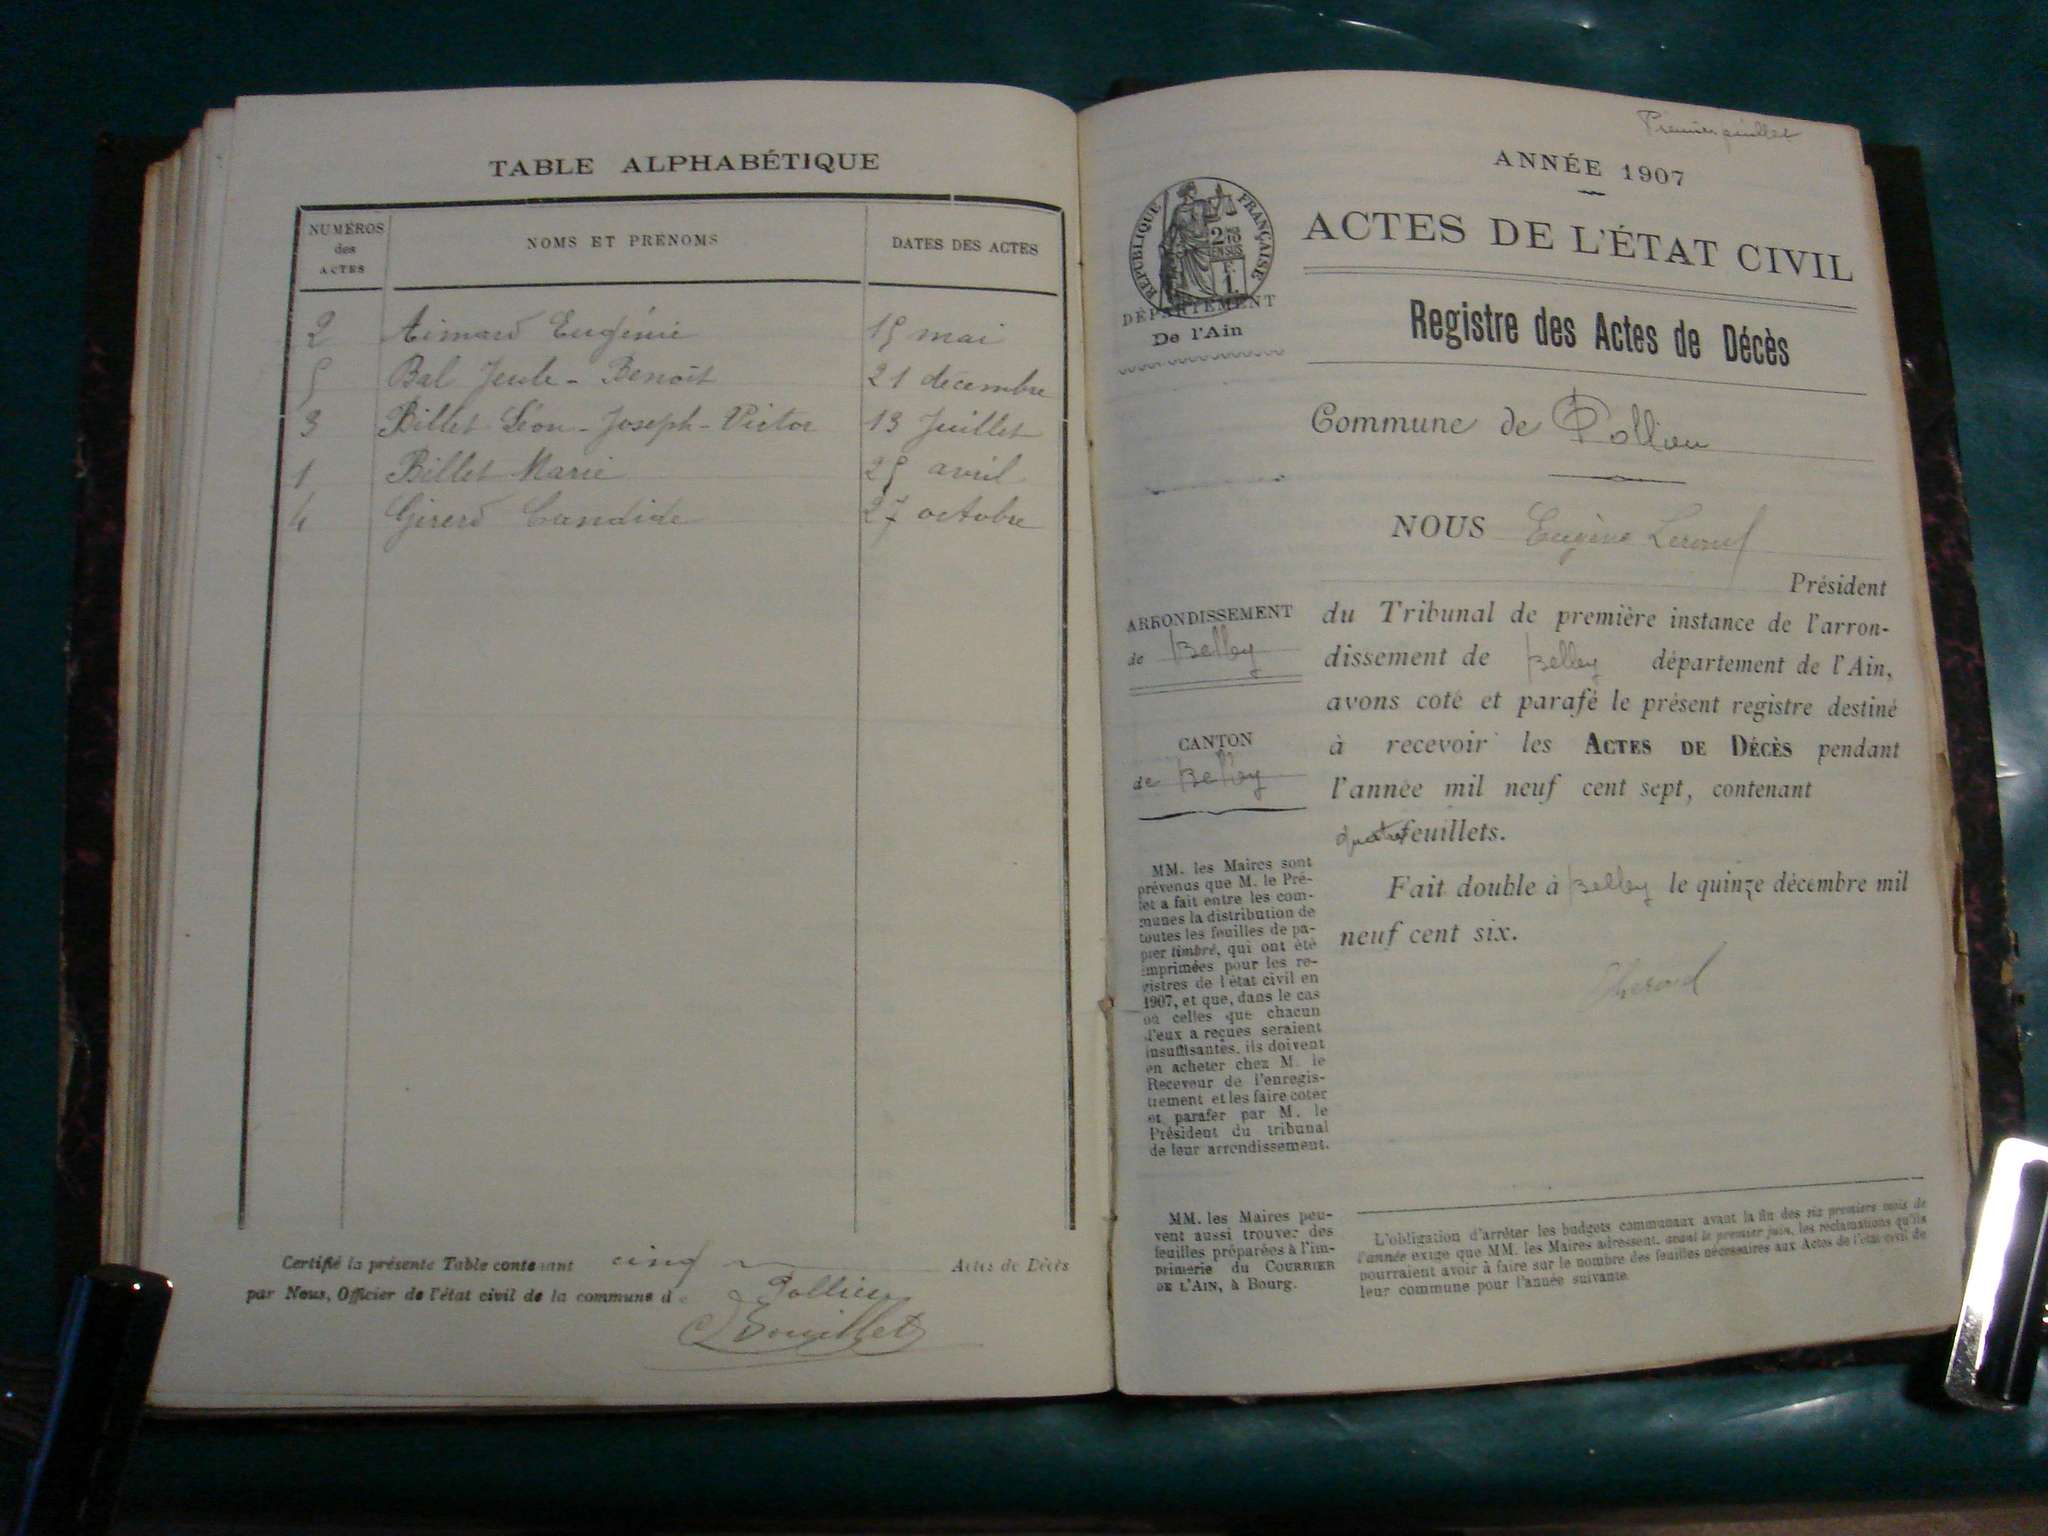 TABLE ALPHABÉTIQUE
NUMÉROS des ACTES
NOMS ET PRÉNOMS
DATES DES ACTES
2 Aimard Eugénie 15 mai
5 Bal Jeule - Benoît 21 décembre
3 Billet Léon - Joseph - Victor 13 Juillet
1 Billet Marie 25 avril
4 Girerd Candide 27 octobre
Certifié la présente Table contenant cinq Actes de Décès
par Nous, Officier de l'état civil de la commune de Pollieu
Premier feuillet
ANNÉE 1907
RÉPUBLIQUE FRANÇAISE
ACTES DE L'ÉTAT CIVIL
DÉPARTEMENT
De l'Ain
Registre des Actes de Décès
Commune de Pollieu
NOUS Eugène
Président
du Tribunal de première instance de l'arron-
dissement de Belley département de l'Ain,
avons coté et parafé le présent registre destiné
à recevoir les ACTES DE DÉCÈS pendant
l'année mil neuf cent sept, contenant
quatre feuillets.
Fait double à Belley le quinze décembre mil
neuf cent six.
ARRONDISSEMENT
de Belley
CANTON
de Belley
MM. les Maires sont
prévenus que M. le Pré-
fet a fait entre les com-
munes la distribution de
toutes les feuilles de pa-
pier timbré, qui ont été
imprimées pour les re-
gistres de l'état civil en
1907, et que, dans le cas
où celles que chacun
d'eux a reçues seraient
insuffisantes, ils doivent
en acheter chez M. le
Receveur de l'enregis-
trement et les faire coter
et parafer par M. le
Président du tribunal
de leur arrondissement.
MM. les Maires peu-
vent aussi trouver des
feuilles préparées à l'im-
primerie du COURRIER
DE L'AIN, à Bourg.
L'obligation d'arrêter les budgets communaux avant la fin des six premiers mois de
l'année exige que MM. les Maires adressent, avant le premier juin, les réclamations qu'ils
pourraient avoir à faire sur le nombre des feuilles nécessaires aux Actes de l'état civil de
leur commune pour l'année suivante.